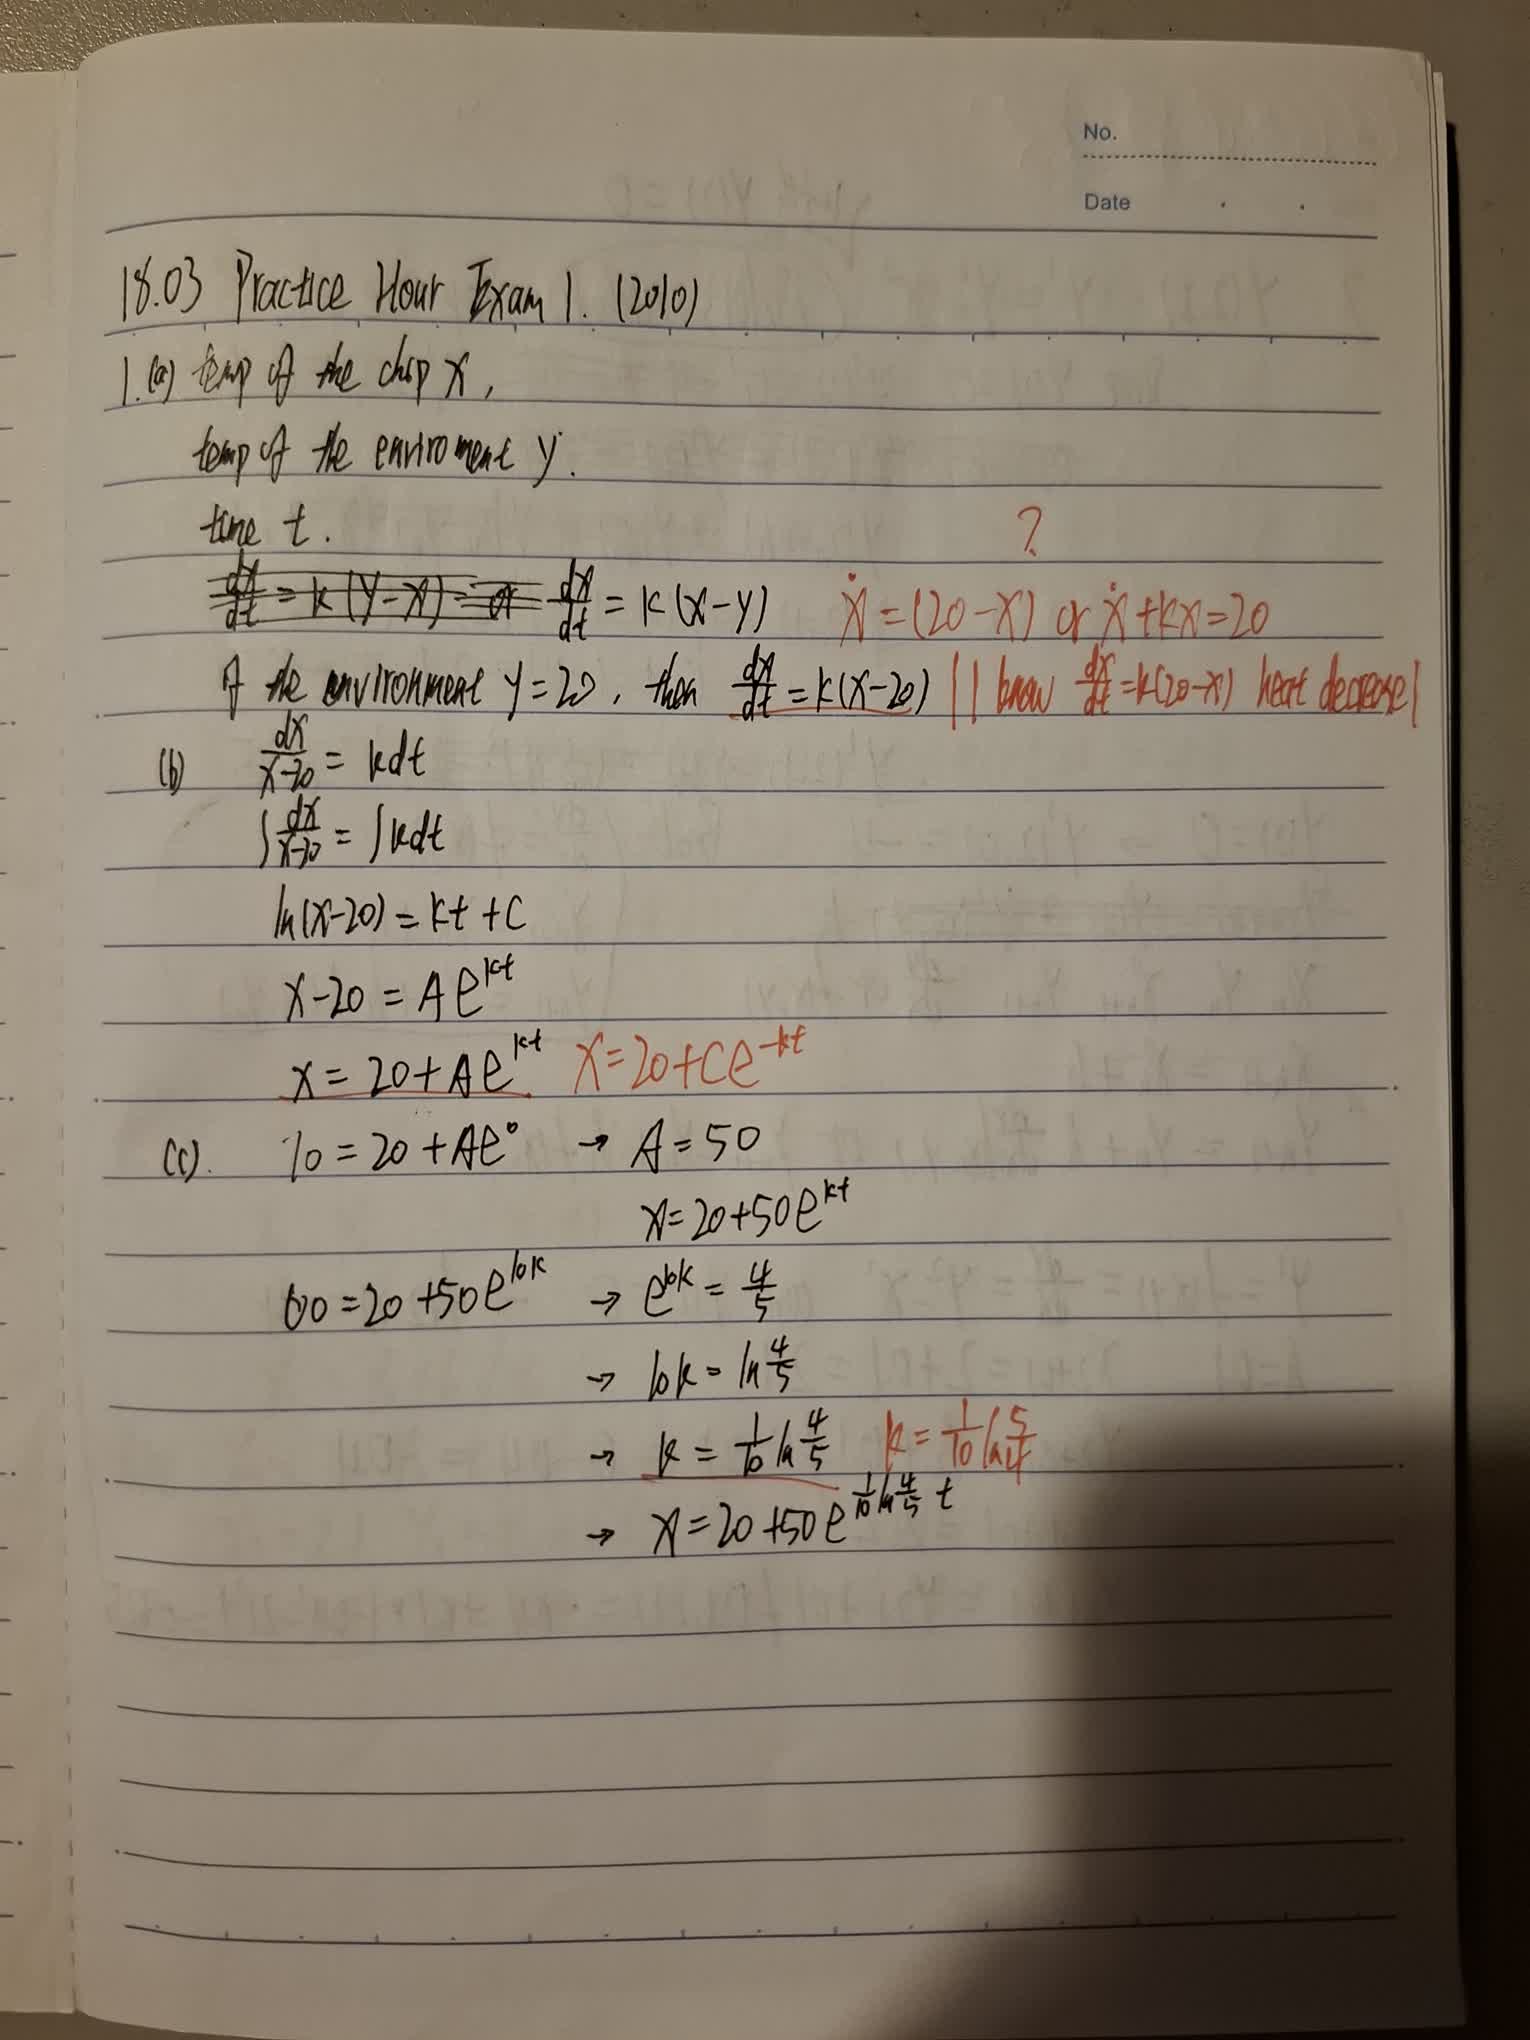 No.
Date
18.03 Practice Hour Exam 1. (2010)
1.(a) temp of the chip x,
temp of the enviroment y.
time t.
?
dx/dt = k(y-x) or dx/dt = k(x-y) ẋ=(20-x) or ẋ+kx=20
If the environment y=20, then dx/dt = k(x-20) | I know dx/dt=k(20-x) heat decrease|
(b) dx/x-20 = kdt
∫dx/x-20 = ∫kdt
ln(x-20) = kt + c
x-20 = Ae^kt
x = 20+Ae^kt x=20+Ce^-kt
(c). 70 = 20 + Ae° → A = 50
x=20+50e^kt
60=20+50e^10k → e^10k = 4/5
→ 10k = ln 4/5
→ k = 1/10 ln 4/5 k = 1/10 ln 5/4
→ x = 20+50e^1/10 ln 4/5 t